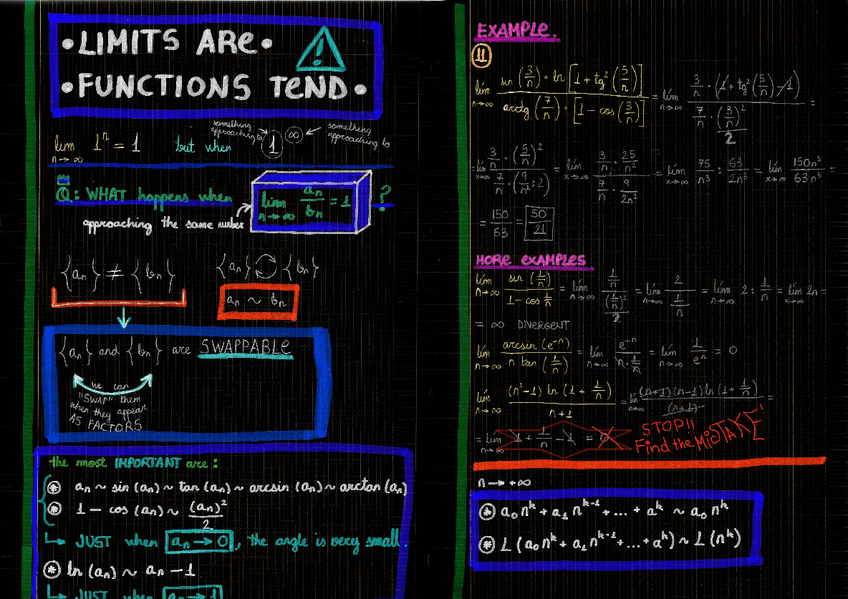 •LIMITS ARE•
•FUNCTIONS TEND•
!
lim 1ⁿ = 1 but when 1^∞
n→∞
something approaching to
something approaching to
Q: WHAT happens when lim aₙ/bₙ = 1 ?
n→∞
approaching the same number
{aₙ} ≠ {bₙ}
{aₙ} {bₙ}
aₙ ~ bₙ
{aₙ} and {bₙ} are SWAPPABLE
we can
"SWAP" them
when they appear
AS FACTORS
the most IMPORTANT are:
⊛ aₙ ~ sin (aₙ) ~ tan (aₙ) ~ arcsin (aₙ) ~ arctan (aₙ)
⊛ 1 - cos (aₙ) ~ (aₙ)²/2
↳ JUST when aₙ → 0, the angle is very small.
⊛ ln (aₙ) ~ aₙ - 1
↳ JUST when aₙ → 1
EXAMPLE.
11
lim n→∞ sin (3/n) · ln [1 + tg² (5/n)] / arctg (7/n) · [1 - cos (3/n)] = lim n→∞ 3/n · (1 + tg² (5/n) - 1) / 7/n · (3/n)²/2 =
= lim x→∞ 3/n · (5/n)² / 7/n · (9/n² : 2) = lim x→∞ 3/n · 25/n² / 7/n · 9/2n² = lim x→∞ 75/n³ : 63/2n³ = lim x→∞ 150n³/63n³ =
= 150/63 = 50/21
MORE EXAMPLES
lim n→∞ sin (1/n) / 1 - cos 1/n = lim n→∞ 1/n / (1/n)²/2 = lim n→∞ 2 / 1/n = lim n→∞ 2 : 1/n = lim x→∞ 2n =
= ∞ DIVERGENT
lim n→∞ arcsin (e⁻ⁿ) / n tan (1/n) = lim n→∞ e⁻ⁿ / n · 1/n = lim n→∞ 1/eⁿ = 0
lim n→∞ (n²-1) ln (1 + 1/n) / n+1 = lim n→∞ (n+1)(n-1) ln (1 + 1/n) / (n+1) =
= lim n→∞ 1 + 1/n - 1 = 0
STOP!!
Find the MISTAKE!
n → +∞
⊛ a₀nᵏ + a₁nᵏ⁻¹ + ... + aᵏ ~ a₀nᵏ
⊛ L (a₀nᵏ + a₁nᵏ⁻¹ + ... + aᵏ) ~ L (nᵏ)